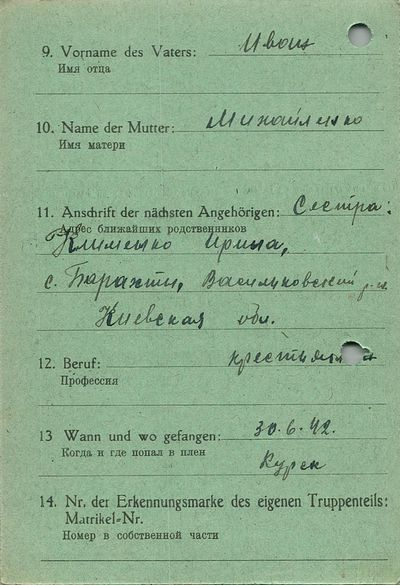 9. Vorname des Vaters: Иван
Имя отца
10. Name der Mutter: Михайленко
Имя матери
11. Anschrift der nächsten Angehörigen: Сестра:
Адрес ближайших родственников
Клименко Ирина,
с. Барахты, Васильковский р-н
Киевская обл.
12. Beruf:
Профессия
13 Wann und wo gefangen: 30.6.42.
Когда и где попал в плен
Курск
14. Nr. der Erkennungsmarke des eigenen Truppenteils:
Matrikel-Nr.
Номер в собственной части